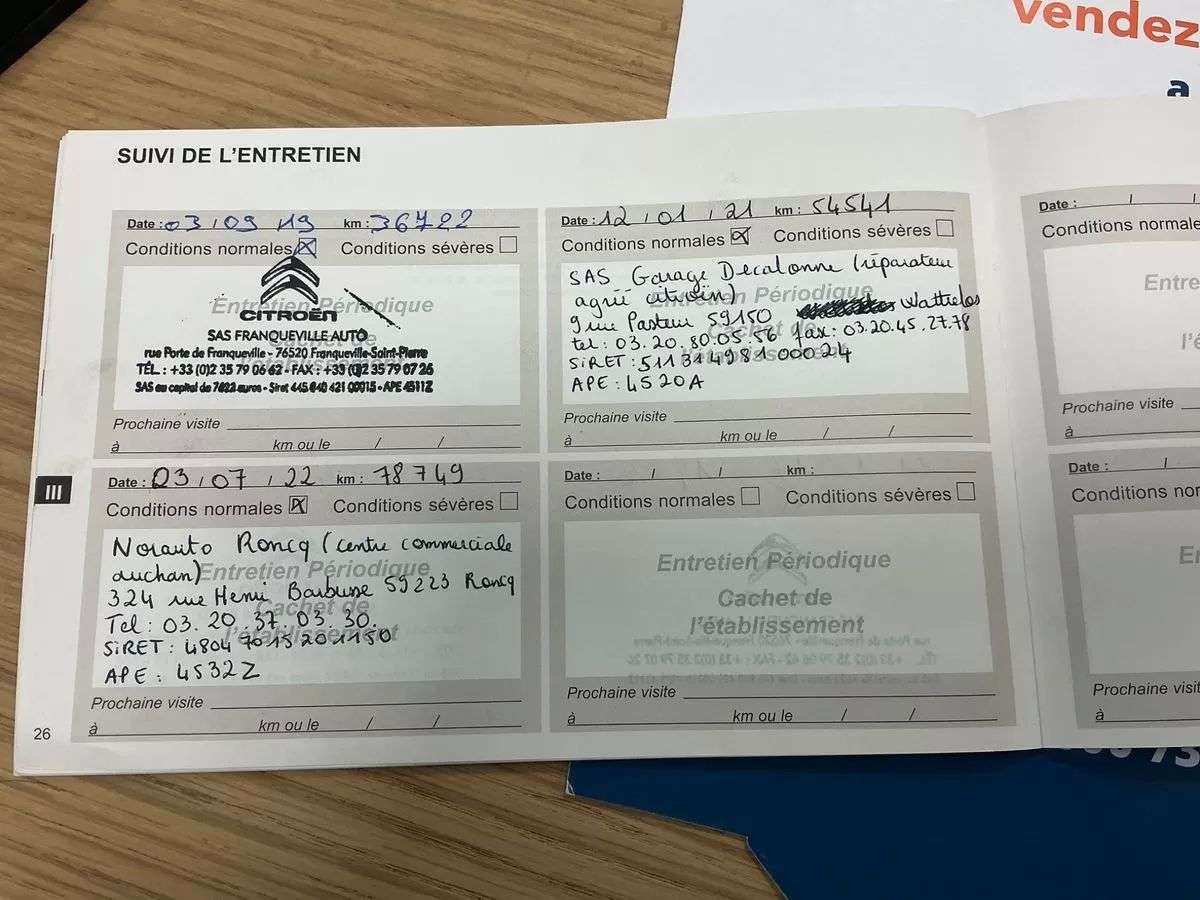 vendez
a
SUIVI DE L'ENTRETIEN
Date : 03 / 09 / 19 km : 36722
Conditions normales Conditions sévères
Entretien Périodique
CITROËN
SAS FRANQUEVILLE AUTO
rue Porte de Franqueville - 76520 Franqueville-Saint-Pierre
TÉL. : +33 (0)2 35 79 06 62 - FAX : +33 (0)2 35 79 07 26
SAS au capital de 7622 euros - Siret 445 640 421 00015 - APE 4511Z
Prochaine visite
à km ou le / /
Date : 12 / 01 / 21 km : 54541
Conditions normales Conditions sévères
SAS Garage Decalonne (réparateur
agréé citroën)
Entretien Périodique
9 rue Pasteur 59150 Wattrelos
Cachet de
tel : 03.20.80.05.56 fax : 03.20.45.27.78
l'établissement
SiRET : 511 314 981 000 24
APE : 4520A
Prochaine visite
à km ou le / /
Date : 03 / 07 / 22 km : 78749
Conditions normales Conditions sévères
Norauto Roncq (centre commerciale
auchan)
Entretien Périodique
324 rue Henri Barbusse 59223 Roncq
Cachet de
Tel : 03. 20. 37. 03. 30.
l'établissement
SiRET : 4804 7015 201150
APE : 4532Z
Prochaine visite
à km ou le / /
Date : / / km :
Conditions normales Conditions sévères
Entretien Périodique
Cachet de
l'établissement
Prochaine visite
à km ou le / /
Date : / /
Conditions normale
Entre
l'é
Prochaine visite
à
Date : /
Conditions nor
E
Prochaine visi
à
III
26